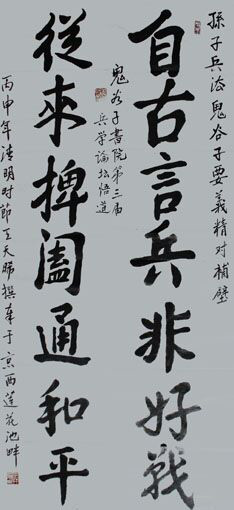 孫子兵法鬼谷子要義精对補壁
自古言兵非好戰
鬼谷子書院第三届
兵学論坛悟道
從來捭阖通和平
丙申年清明时節王天
撰奉于京西莲花池畔